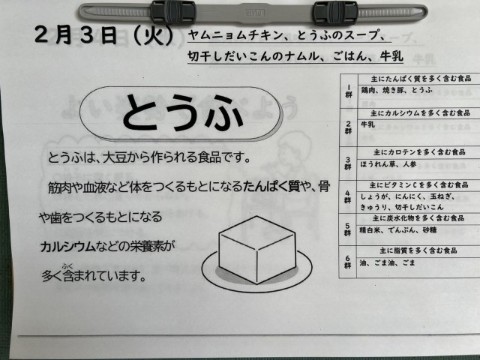 2月3日（火）
ヤムニョムチキン、とうふのスープ、
切干しだいこんのナムル、ごはん、牛乳
とうふ
とうふは、大豆から作られる食品です。
筋肉や血液など体をつくるもとになるたんぱく質や、骨
や歯をつくるもとになる
カルシウムなどの栄養素が
ふく
多く含まれています。
1群
主にたんぱく質を多く含む食品
鶏肉、焼き豚、とうふ
2群
主にカルシウムを多く含む食品
牛乳
3群
主にカロテンを多く含む食品
ほうれん草、人参
4群
主にビタミンCを多く含む食品
しょうが、にんにく、玉ねぎ、
きゅうり、切干しだいこん
5群
主に炭水化物を多く含む食品
精白米、でんぷん、砂糖
6群
主に脂質を多く含む食品
油、ごま油、ごま